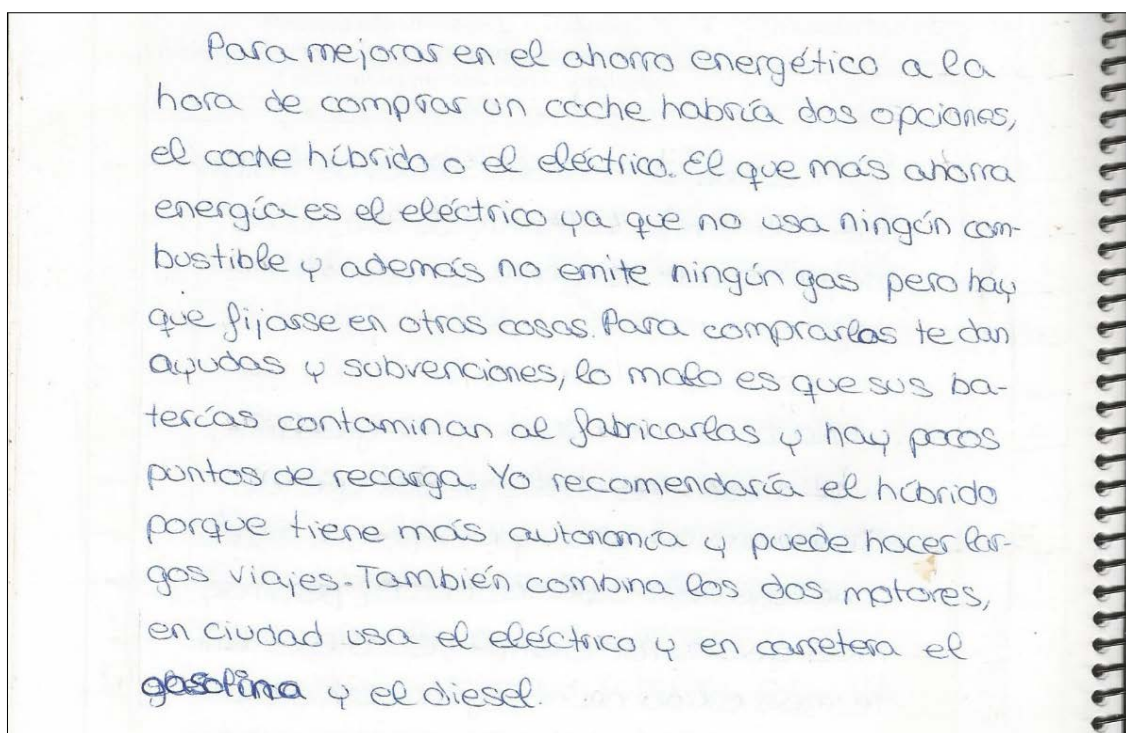 Para mejorar en el ahorro energético a la
hora de comprar un coche habría dos opciones,
el coche híbrido o el eléctrico. El que más ahorra
energía es el eléctrico ya que no usa ningún com-
bustible y además no emite ningún gas pero hay
que fijarse en otras cosas. Para comprarlos te dan
ayudas y subvenciones, lo malo es que sus ba-
terías contaminan al fabricarlas y hay pocos
puntos de recarga. Yo recomendaría el híbrido
porque tiene más autonomía y puede hacer lar-
gos viajes. También combina los dos motores,
en ciudad usa el eléctrico y en carretera el
gasolina y el diesel.